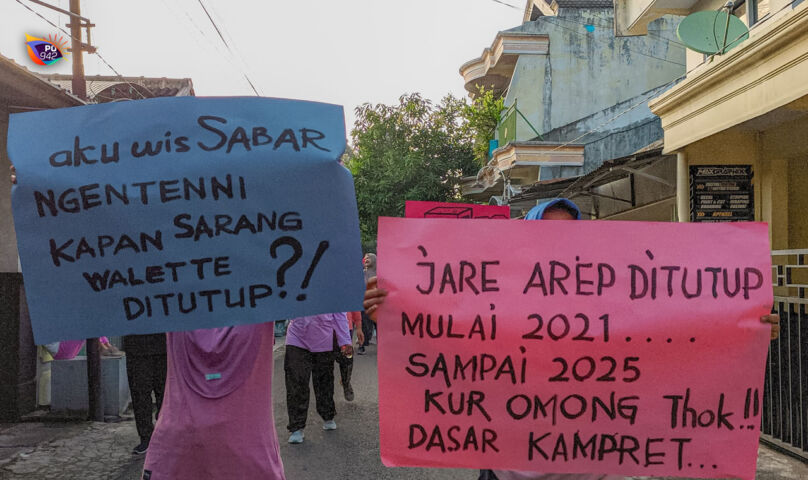 PU
942
aku wis SABAR
NGENTENNI
KAPAN SARANG
WALETTE
DITUTUP?!
JARE AREP DITUTUP
MULAI 2021....
SAMPAI 2025
KUR OMONG Thok!!
DASAR KAMPRET...
MAXGRAPHIX